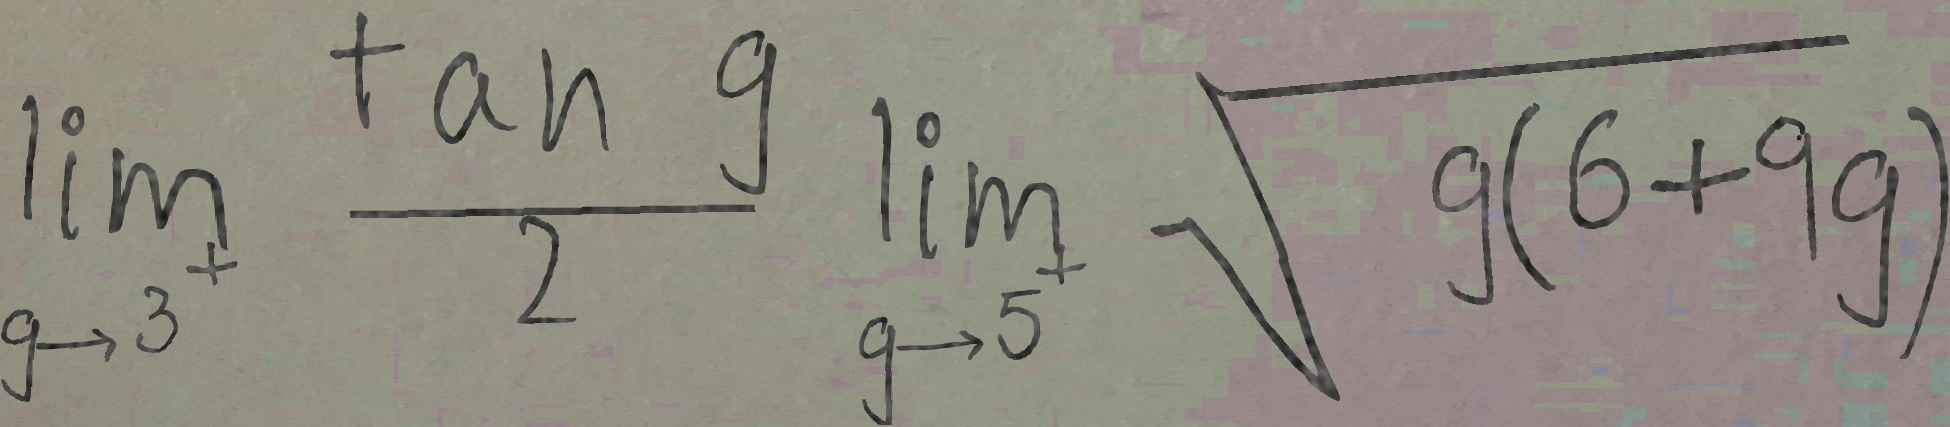 \lim_{g \to 3^+} \frac{\tan g}{2} \lim_{g \to 5^+} \sqrt{g(6+9g)}